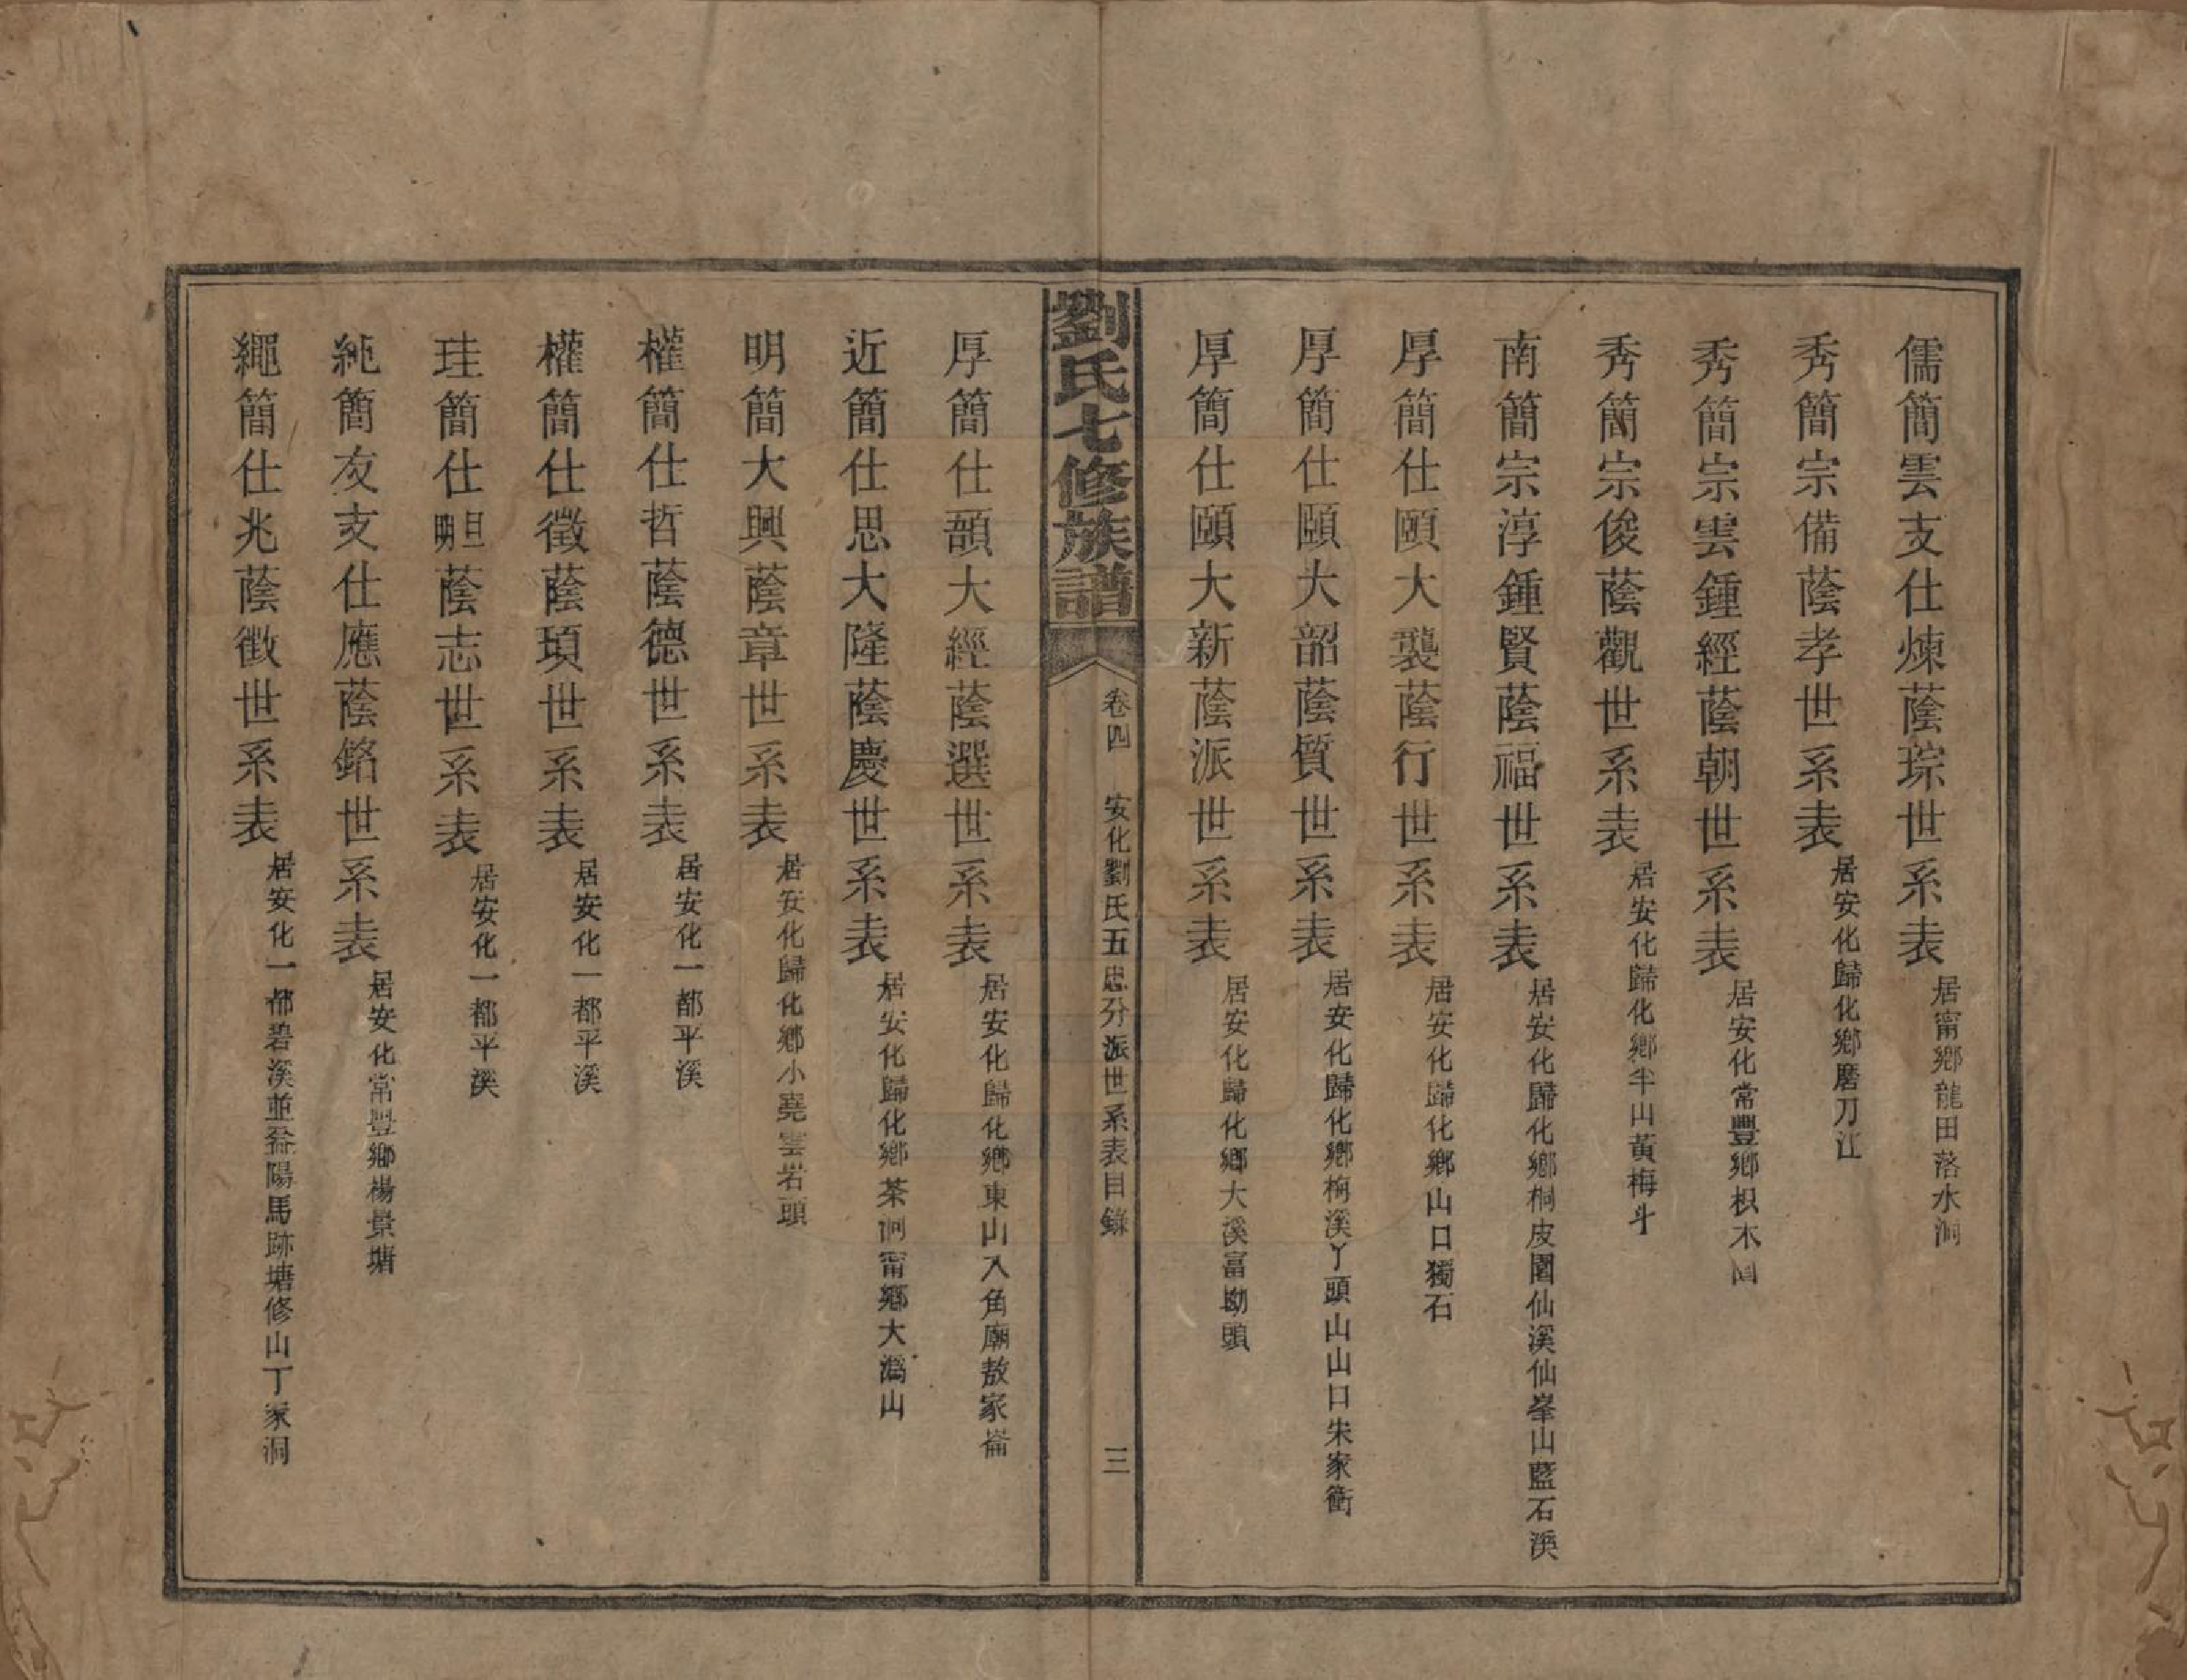 儒簡雲支仕煉蔭琮世系表 居甯鄉龍田落水洞
秀簡宗備蔭孝世系表 居安化歸化鄉磨刀江
秀簡宗雲鍾經蔭朝世系表 居安化常豐鄉枳木
秀簡宗俊蔭觀世系表 居安化歸化鄉半山黃梅斗
南簡宗淳鍾賢蔭福世系表 居安化歸化鄉桐皮園仙溪仙峯山藍石溪
厚簡仕頤大襲蔭行世系表 居安化歸化鄉山口獨石
厚簡仕頤大韶蔭質世系表 居安化歸化鄉梅溪丫頭山山口朱家衝
厚簡仕頤大新蔭派世系表 居安化歸化鄉大溪富坳頭
劉氏七修族譜 卷四 安化劉氏五忠分派世系表目錄 三
厚簡仕頡大經蔭選世系表 居安化歸化鄉東山入角廟敖家崙
近簡仕思大隆蔭慶世系表 居安化歸化鄉茶洞甯鄉大溈山
明簡大興蔭章世系表 居安化歸化鄉小堯雲岩頭
權簡仕哲蔭德世系表 居安化一都平溪
權簡仕徵蔭頊世系表 居安化一都平溪
珪簡仕旦明蔭志世系表 居安化一都平溪
純簡友支仕應蔭銘世系表 居安化常豐鄉楊景塘
繩簡仕兆蔭徵世系表 居安化一都碧溪並益陽馬跡塘修山丁家洞